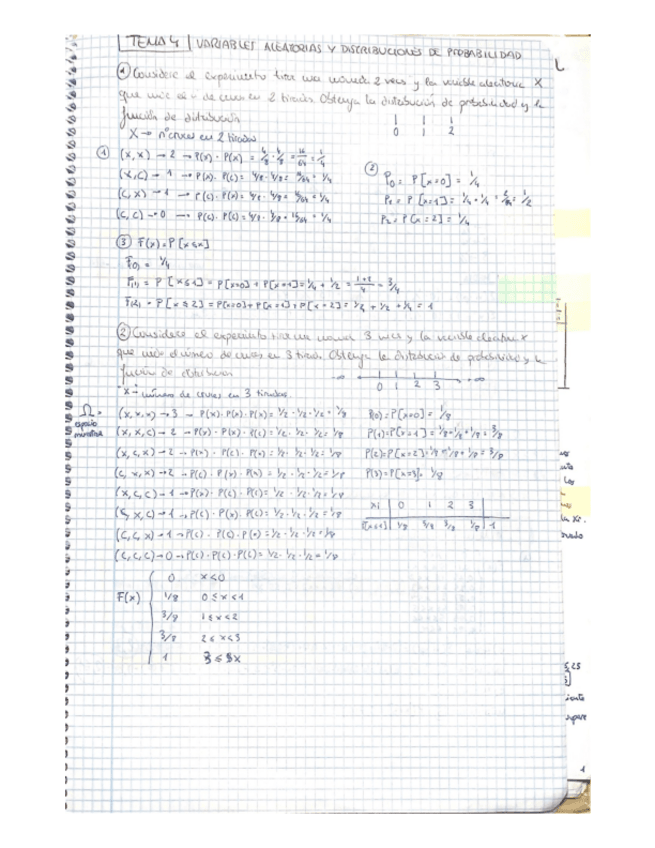 TEMA 4 | VARIABLES ALEATORIAS Y DISTRIBUCIONES DE PROBABILIDAD
① Considere el experimento tirar una moneda 2 veces y la variable aleatoria X
que mide el nº de cruces en 2 tiradas. Obtenga la distribución de probabilidad y la
función de distribución
0 1 2
X → nº cruces en 2 tiradas
① (X, X) → 2 → P(X) · P(X) = 4/8 · 4/8 = 16/64 = 1/4
(X, C) → 1 → P(X) · P(C) = 4/8 · 4/8 = 16/64 = 1/4
(C, X) → 1 → P(C) · P(X) = 4/8 · 4/8 = 16/64 = 1/4
(C, C) → 0 → P(C) · P(C) = 4/8 · 4/8 = 16/64 = 1/4
② P0 = P[x=0] = 1/4
P1 = P[x=1] = 1/4 + 1/4 = = 1/2
P2 = P[x=2] = 1/4
③ F(x) = P[X≤x]
F(0) = 1/4
F(1) = P[x≤1] = P[x=0] + P[x=1] = 1/4 + 1/2 = 1+2/4 = 3/4
F(2) = P[x≤2] = P[x=0] + P[x=1] + P[x=2] = 1/4 + 1/2 + 1/4 = 1
② Considere el experimento tirar una moneda 3 veces y la variable aleatoria X
que mide el número de cruces en 3 tiradas. Obtenga la distribución de probabilidad y la
función de distribución
-∞ 0 1 2 3 +∞
X → número de cruces en 3 tiradas.
Ω = espacio muestral
(X, X, X) → 3 → P(X) · P(X) · P(X) = 1/2 · 1/2 · 1/2 = 1/8
(X, X, C) → 2 → P(X) · P(X) · P(C) = 1/2 · 1/2 · 1/2 = 1/8
(X, C, X) → 2 → P(X) · P(C) · P(X) = 1/2 · 1/2 · 1/2 = 1/8
(C, X, X) → 2 → P(C) · P(X) · P(X) = 1/2 · 1/2 · 1/2 = 1/8
(X, C, C) → 1 → P(X) · P(C) · P(C) = 1/2 · 1/2 · 1/2 = 1/8
(C, X, C) → 1 → P(C) · P(X) · P(C) = 1/2 · 1/2 · 1/2 = 1/8
(C, C, X) → 1 → P(C) · P(C) · P(X) = 1/2 · 1/2 · 1/2 = 1/8
(C, C, C) → 0 → P(C) · P(C) · P(C) = 1/2 · 1/2 · 1/2 = 1/8
P(0) = P[x=0] = 1/8
P(1) = P[x=1] = 1/8 + 1/8 + 1/8 = 3/8
P(2) = P[x=2] = 1/8 + 1/8 + 1/8 = 3/8
P(3) = P[x=3] = 1/8
Xi | 0 1 2 3 |
1/8 3/8 3/8 1/8 | 1
F(x)
0 x<0
1/8 0≤x<1
3/8 1≤x<2
3/8 2≤x<3
1 3≤x